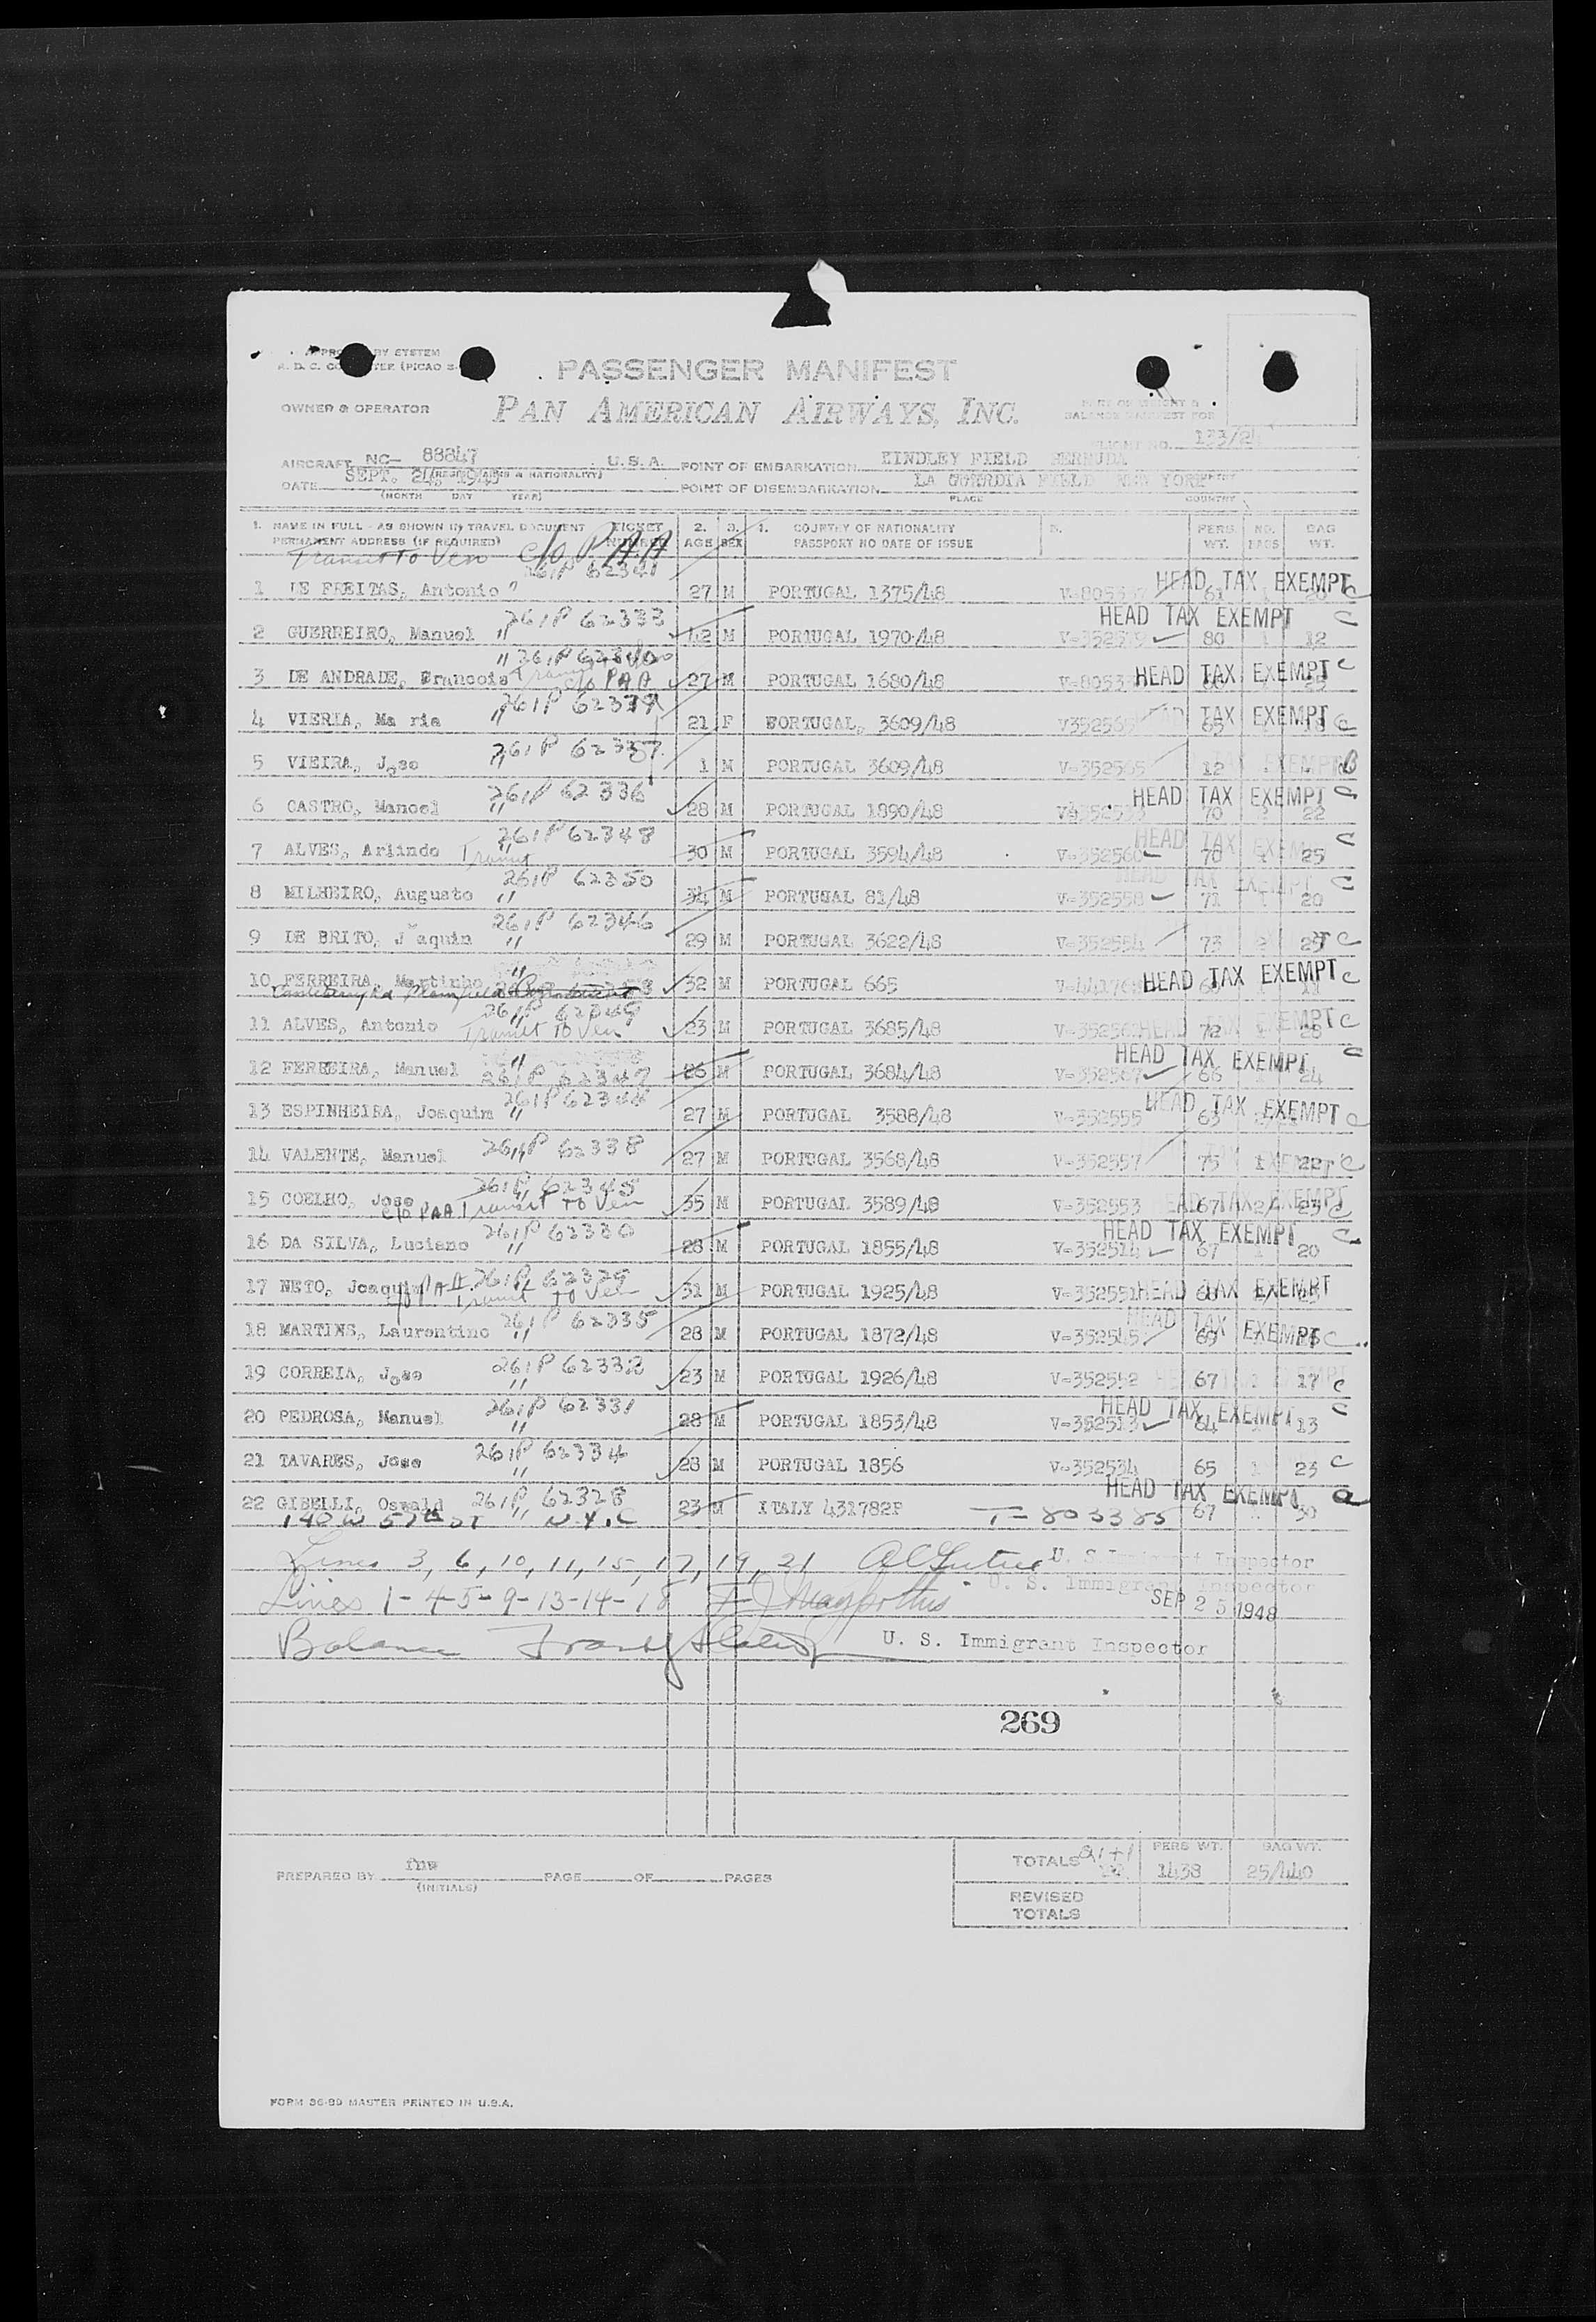 BY SYSTEM
PASSENGER MANIFEST
OWNER & OPERATOR PAN AMERICAN AIRWAYS, INC.
FLIGHT NO. 133/24
AIRCRAFT NC- 88847 U.S.A. POINT OF EMBARKATION KINDLEY FIELD BERMUDA
DATE SEPT. 24, POINT OF DISEMBARKATION LA GUARDIA FIELD NEW YORK
(MONTH DAY YEAR) PLACE COUNTRY
1. NAME IN FULL - AS SHOWN IN TRAVEL DOCUMENT TICKET NUMBER 2. 3. 4. COUNTRY OF NATIONALITY 5. PERS. NO. BAG
PERMANENT ADDRESS (IF REQUIRED) AGE SEX PASSPORT NO DATE OF ISSUE WT. BAGS WT.
Transit to Ven c/o P.A.A
261P 62341
1 DE FREITAS, Antonio " 27 M PORTUGAL 1375/48 HEAD TAX EXEMPT 61 C
261P 62333 HEAD TAX EXEMPT C
2 GUERREIRO, Manuel " 42 M PORTUGAL 1970/48 80 12
" 261P
3 DE ANDRADE, Francois c/o PAA 27 M PORTUGAL 1680/48 HEAD TAX EXEMPT C
261P
4 VIERIA, Ma ria " 21 F PORTUGAL, 3609/48 V352565 TAX EXEMPT 65 18 C
261P 62337
5 VIEIRA, Jose " 1 M PORTUGAL 3609/48 V-352565 12 B
261P 62336 HEAD TAX EXEMPT C
6 CASTRO, Manoel " 28 M PORTUGAL 1890/48 70 22
261P 62348 HEAD TAX C
7 ALVES, Arlindo Transit " 30 M PORTUGAL 3594/48 V-352560 70 25
261P 62350 HEAD TAX EXEMPT C
8 MILHEIRO, Augusto " 34 M PORTUGAL 81/48 V-352558 71 20
261P 62346
9 DE BRITO, Joaquin " 29 M PORTUGAL 3622/48 V-352554 73 C
10 FERREIRA, Martinho " 32 M PORTUGAL 665 HEAD TAX EXEMPT C
261P 62349
11 ALVES, Antonio Transit to Ven 23 M PORTUGAL 3685/48 HEAD TAX EXEMPT 72 28 C
" HEAD TAX EXEMPT C
12 FERREIRA, Manuel 261P 62347 26 M PORTUGAL 3684/48 V-352567 66 24
261P 62344
13 ESPINHEIRA, Joaquim " 27 M PORTUGAL 3588/48 V-352555 HEAD TAX EXEMPT 63 C
14 VALENTE, Manuel 261P 62338 27 M PORTUGAL 3568/48 V-352557 75 1 22 C
261P 62345
15 COELHO, Jose c/o PAA Transit to Ven 35 M PORTUGAL 3589/48 V-352553 67 C
261P 62330 HEAD TAX EXEMPT C
16 DA SILVA, Luciano " 28 M PORTUGAL 1855/48 V-352514 67 20
261P 62329
17 NETO, Joaquim PAA Transit to Ven 31 M PORTUGAL 1925/48 V-352551 HEAD TAX EXEMPT
261P 62335 HEAD TAX EXEMPT
18 MARTINS, Laurentino " 28 M PORTUGAL 1872/48 V-352545 69 C
261P 62332
19 CORREIA, Jose " 23 M PORTUGAL 1926/48 V-352552 67 17 C
261P 62331 HEAD TAX EXEMPT C
20 PEDROSA, Manuel " 28 M PORTUGAL 1853/48 V-352513 64 13
261P 62334
21 TAVARES, Jose " 28 M PORTUGAL 1856 V-352534 65 1 23 C
HEAD TAX EXEMPT
22 GIBELLI, Oswald 261P 62328 23 M ITALY 431782P T-803385 67 30
140 W 57th ST " N.Y.C
Lines 3, 6, 10, 11, 15, 17, 19, 21 U. S. Immigrant Inspector
U. S. Immigrant Inspector
Lines 1-4-5-9-13-14-18 SEP 25 1948
Balance U. S. Immigrant Inspector
269
PREPARED BY fnw PAGE OF PAGES
(INITIALS)
TOTALS 21+1 PERS WT. 1438 BAG WT. 25/440
REVISED
TOTALS
FORM 36-89 MASTER PRINTED IN U.S.A.